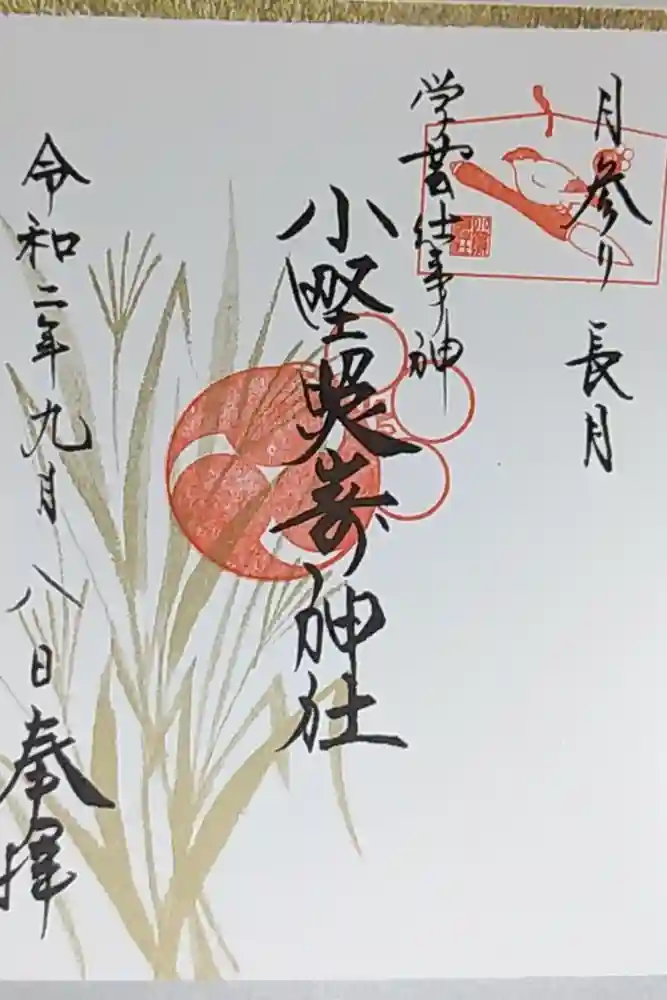 月参り 長月
学芸仕事神
小野照嵜神社
令和二年九月八日奉拝